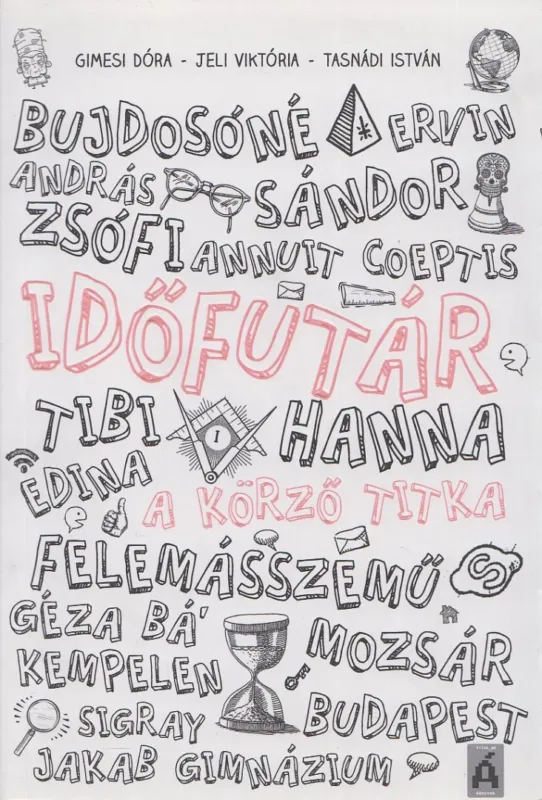 GIMESI DÓRA - JELI VIKTÓRIA - TASNÁDI ISTVÁN
BUJDOSÓNÉ ERVIN
ANDRÁS SÁNDOR
ZSÓFI ANNUIT COEPTIS
IDŐFUTÁR
TIBI I HANNA
EDINA
A KÖRZŐ TITKA
FELEMÁSSZEMŰ
GÉZA BÁ'
MOZSÁR
KEMPELEN
SIGRAY BUDAPEST
JAKAB GIMNÁZIUM
Á